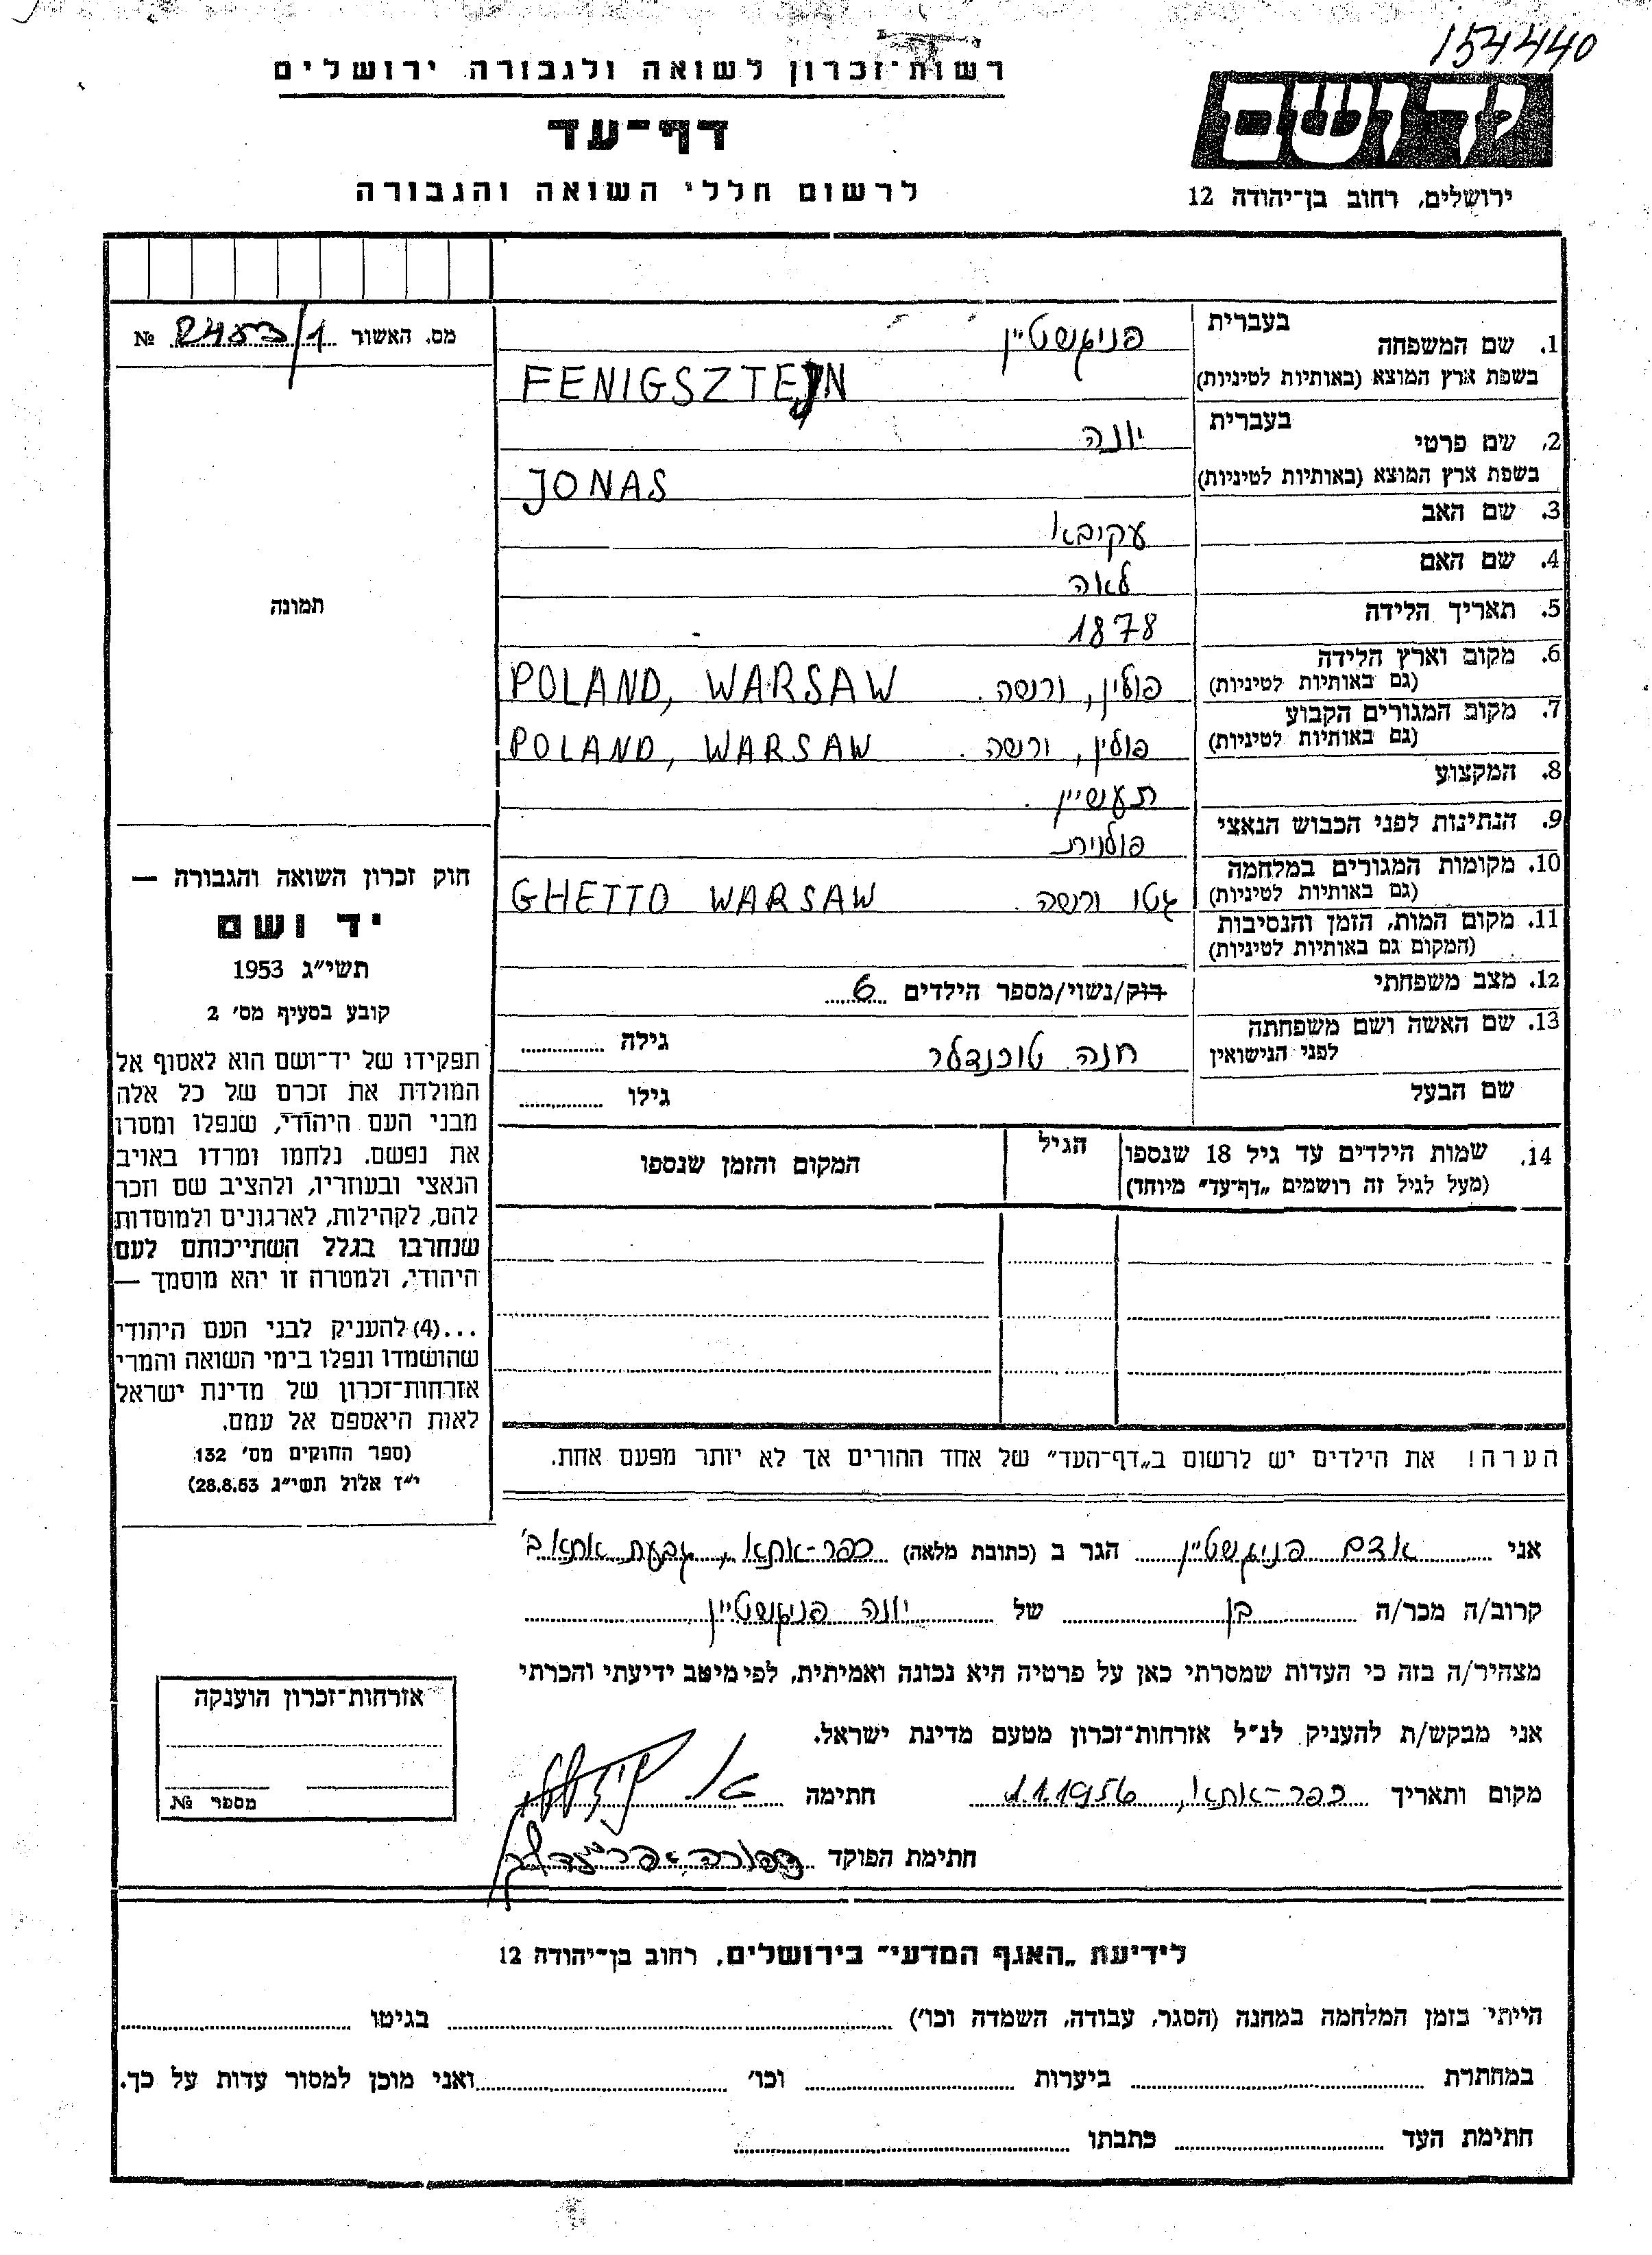 154440
רשות־זכרון לשואה ולגבורה ירושלים
דף־עד
לרשום חללי השואה והגבורה
יד ושם
ירושלים, רחוב בן־יהודה 12
מס. האשור 2453/1 №
תמונה
1. שם המשפחה
בעברית
פניגשטיין
בשפת ארץ המוצא (באותיות לטיניות)
FENIGSZTEJN
2. שם פרטי
בעברית
יונה
בשפת ארץ המוצא (באותיות לטיניות)
JONAS
3. שם האב
עקיבא
4. שם האם
לאה
5. תאריך הלידה
1878
6. מקום וארץ הלידה
(גם באותיות לטיניות)
פולין, ורשה. POLAND, WARSAW
7. מקום המגורים הקבוע
(גם באותיות לטיניות)
פולין, ורשה. POLAND, WARSAW
8. המקצוע
תעשיין.
9. הנתינות לפני הכבוש הנאצי
פולנית
10. מקומות המגורים במלחמה
(גם באותיות לטיניות)
גטו ורשה. GHETTO WARSAW
11. מקום המות, הזמן והנסיבות
(המקום גם באותיות לטיניות)
12. מצב משפחתי
רוק/נשוי/מספר הילדים 6
13. שם האשה ושם משפחתה
לפני הנישואין
חנה טוכנדלר
גילה
שם הבעל
גילו
14. שמות הילדים עד גיל 18 שנספו
(מעל לגיל זה רושמים „דף־עד" מיוחד)
הגיל
המקום והזמן שנספו
הערה! את הילדים יש לרשום ב„דף־העד" של אחד ההורים אך לא יותר מפעם אחת.
חוק זכרון השואה והגבורה —
יד ושם
תשי"ג 1953
קובע בסעיף מס׳ 2
תפקידו של יד־ושם הוא לאסוף אל
המולדת את זכרם של כל אלה
מבני העם היהודי, שנפלו ומסרו
את נפשם, נלחמו ומרדו באויב
הנאצי ובעוזריו, ולהציב שם וזכר
להם, לקהילות, לארגונים ולמוסדות
שנחרבו בגלל השתייכותם לעם
היהודי, ולמטרה זו יהא מוסמך —
...(4) להעניק לבני העם היהודי
שהושמדו ונפלו בימי השואה והמרי
אזרחות־זכרון של מדינת ישראל
לאות היאספם אל עמם.
(ספר החוקים מס׳ 132
י"ז אלול תשי"ג 28.8.53)
אני אדם פניגשטיין הגר ב (כתובת מלאה) כפר-אתא, גבעת אתא ב'
קרוב/ה מכר/ה בן של יונה פניגשטיין
מצהיר/ה בזה כי העדות שמסרתי כאן על פרטיה היא נכונה ואמיתית, לפי מיטב ידיעתי והכרתי
אני מבקש/ת להעניק לנ"ל אזרחות־זכרון מטעם מדינת ישראל.
מקום ותאריך כפר-אתא, 1.1.1956 חתימה
חתימת הפוקד
אזרחות־זכרון הוענקה
מספר №
לידיעת „האגף המדעי" בירושלים, רחוב בן־יהודה 12
הייתי בזמן המלחמה במחנה (הסגר, עבודה, השמדה וכו׳) בגיטו
במחתרת ביערות וכו׳ ואני מוכן למסור עדות על כך.
חתימת העד כתבתו